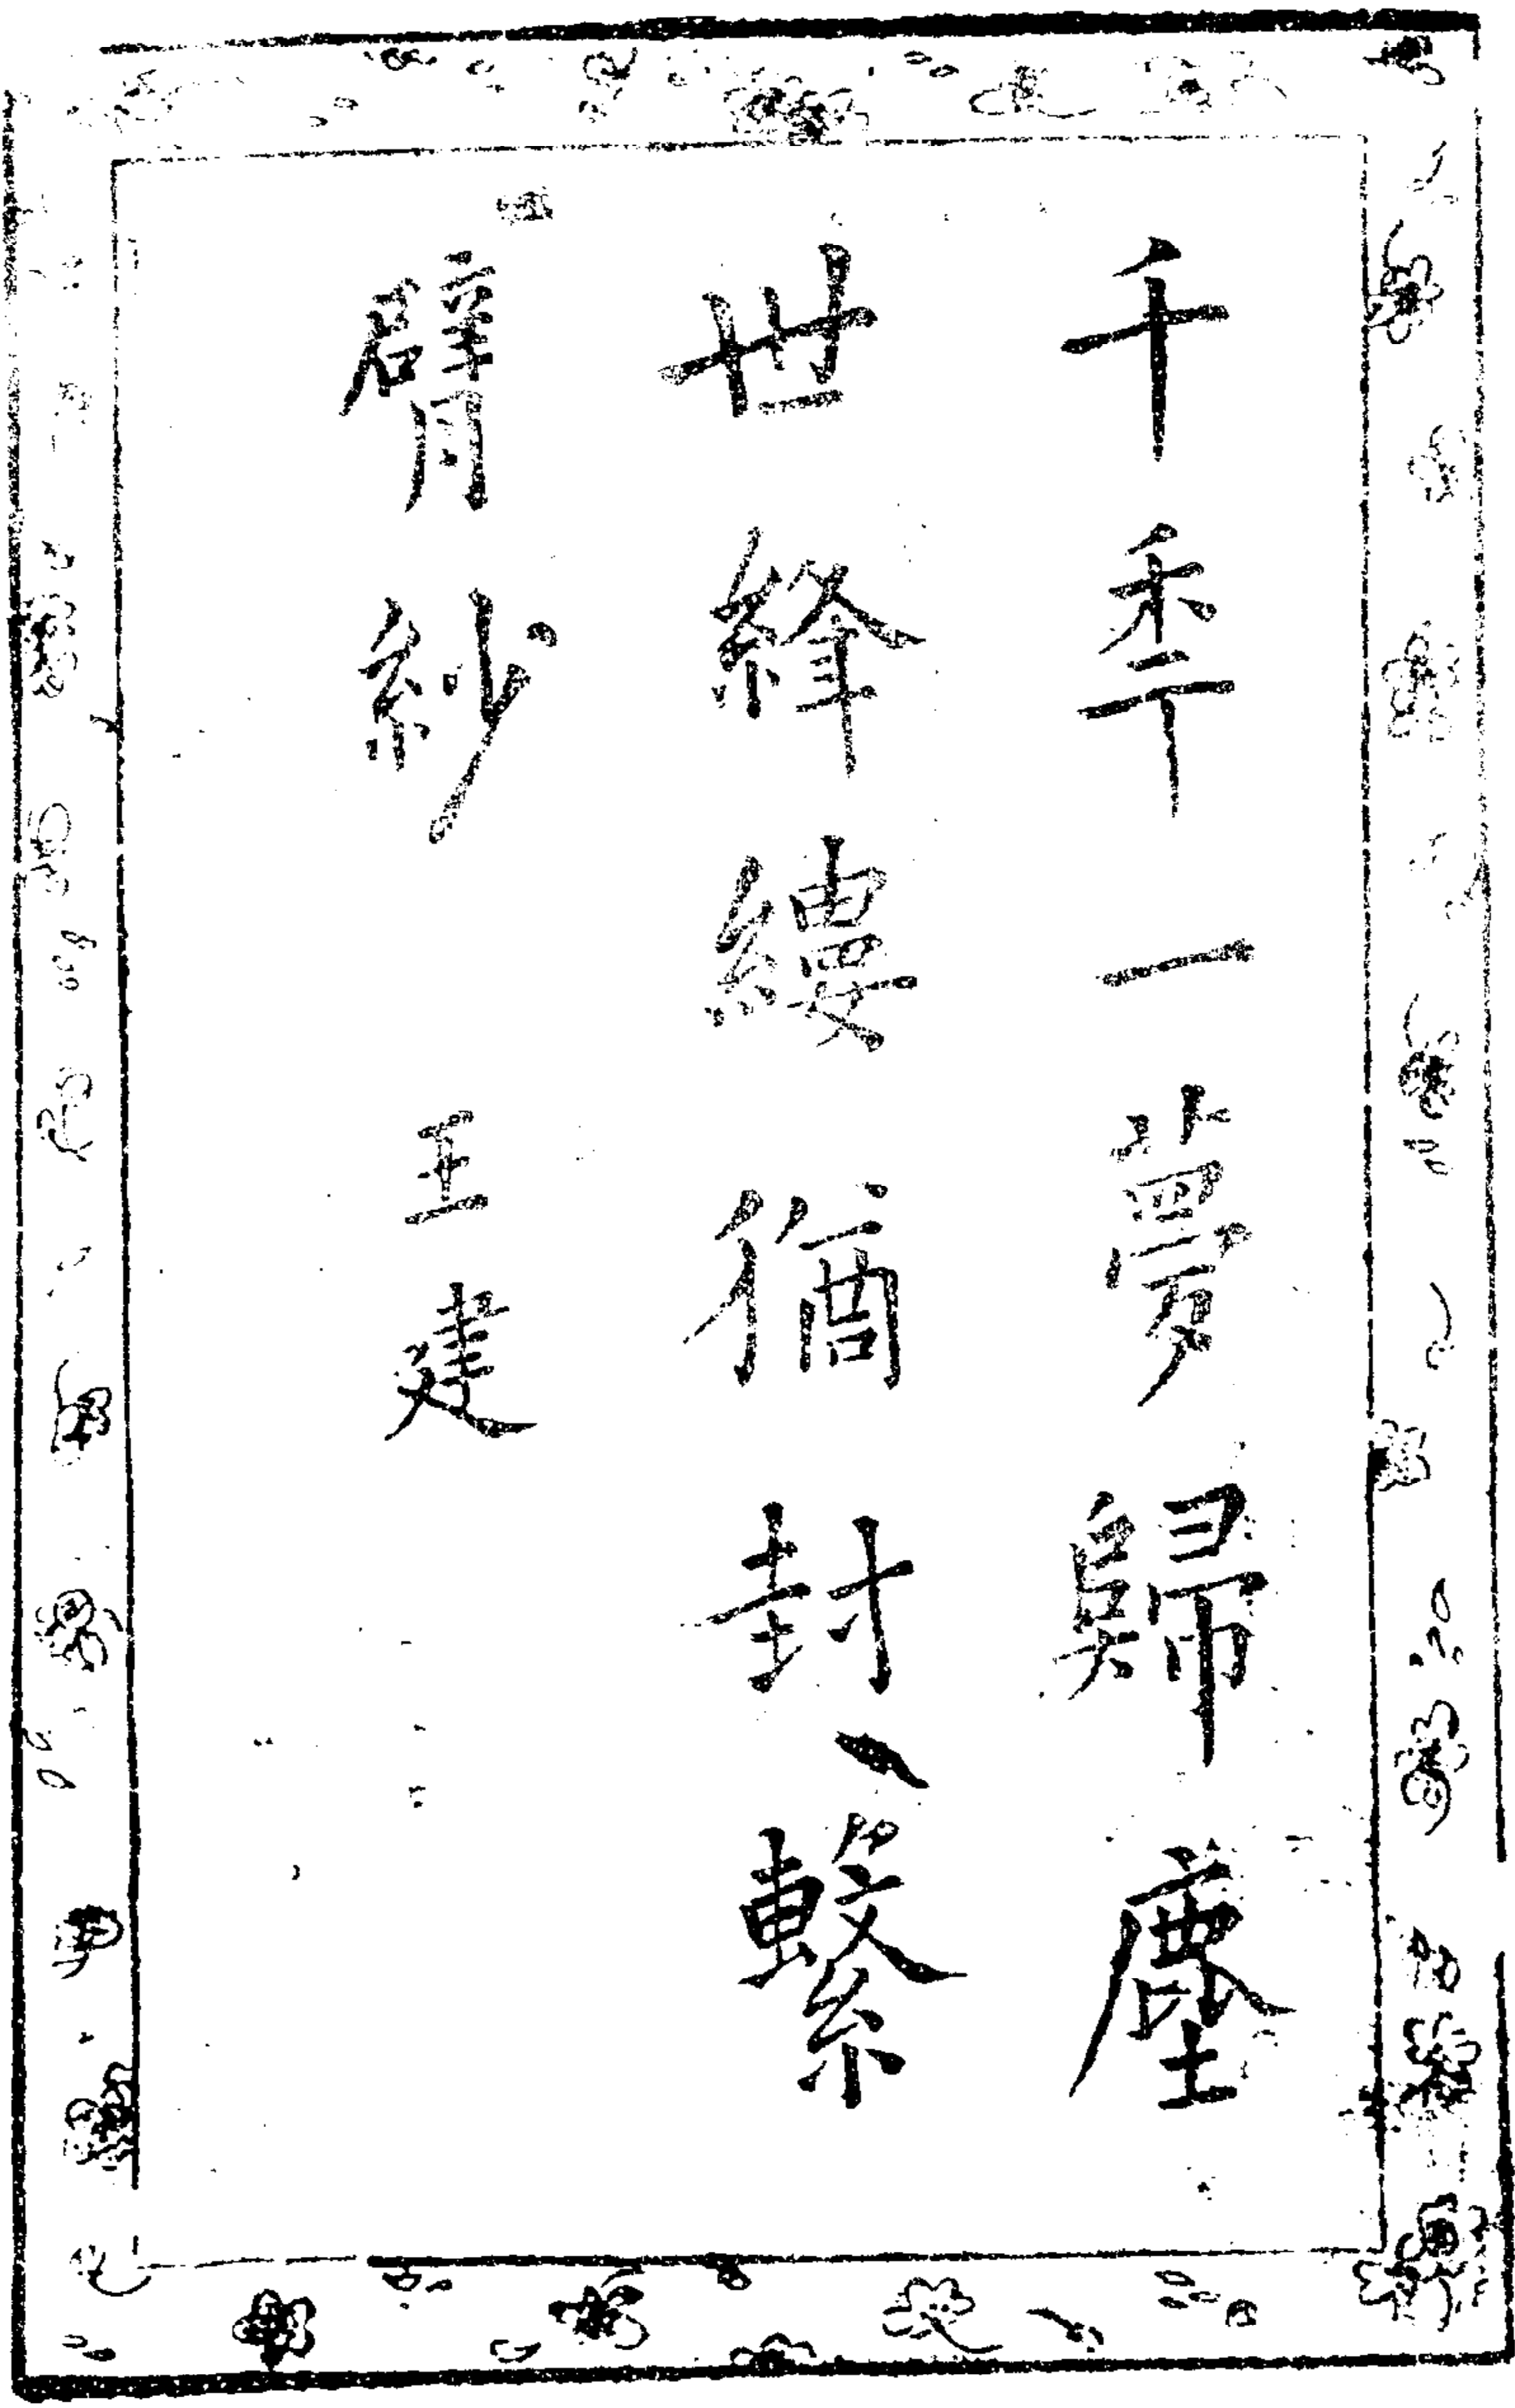 千秊一夢歸塵
世絳縷猶封繫
臂紗 王建